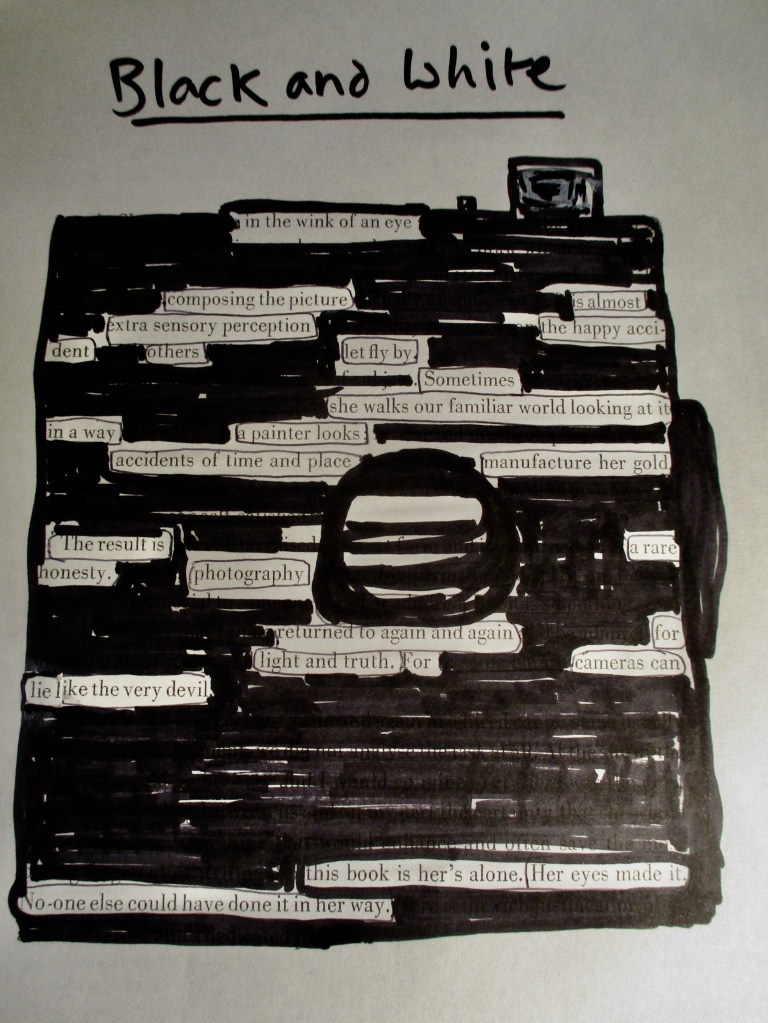 Black and White
in the wink of an eye
composing the picture is almost
extra sensory perception the happy acci-
dent others let fly by.
Sometimes
she walks our familiar world looking at it
in a way a painter looks
accidents of time and place manufacture her gold
The result is a rare
honesty. photography
returned to again and again for
light and truth. For cameras can
lie like the very devil
this book is her's alone. Her eyes made it.
No-one else could have done it in her way.